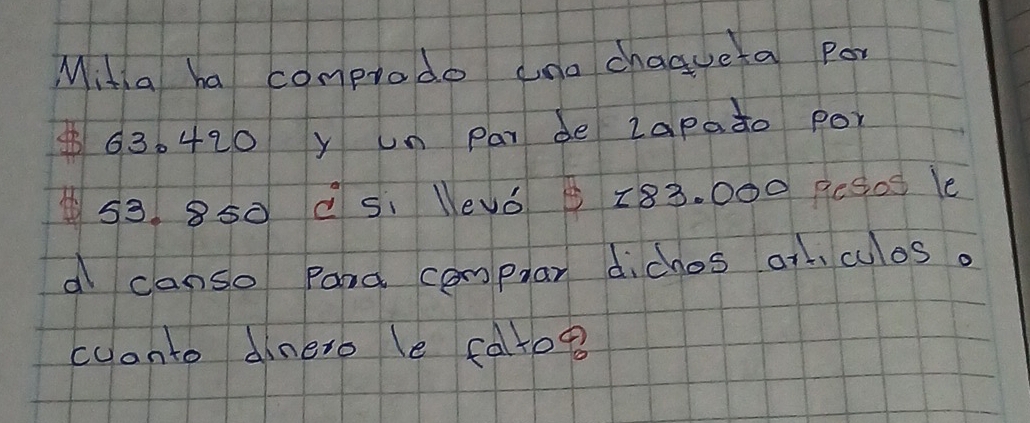 Mitia ha comprado una chaqueta por
$ 63.420 y un par de zapato por
$ 53.850 ¿ si llevó $ 183.000 pesos le
d canso para comprar dichos articulos o
cuanto dinero le falto?